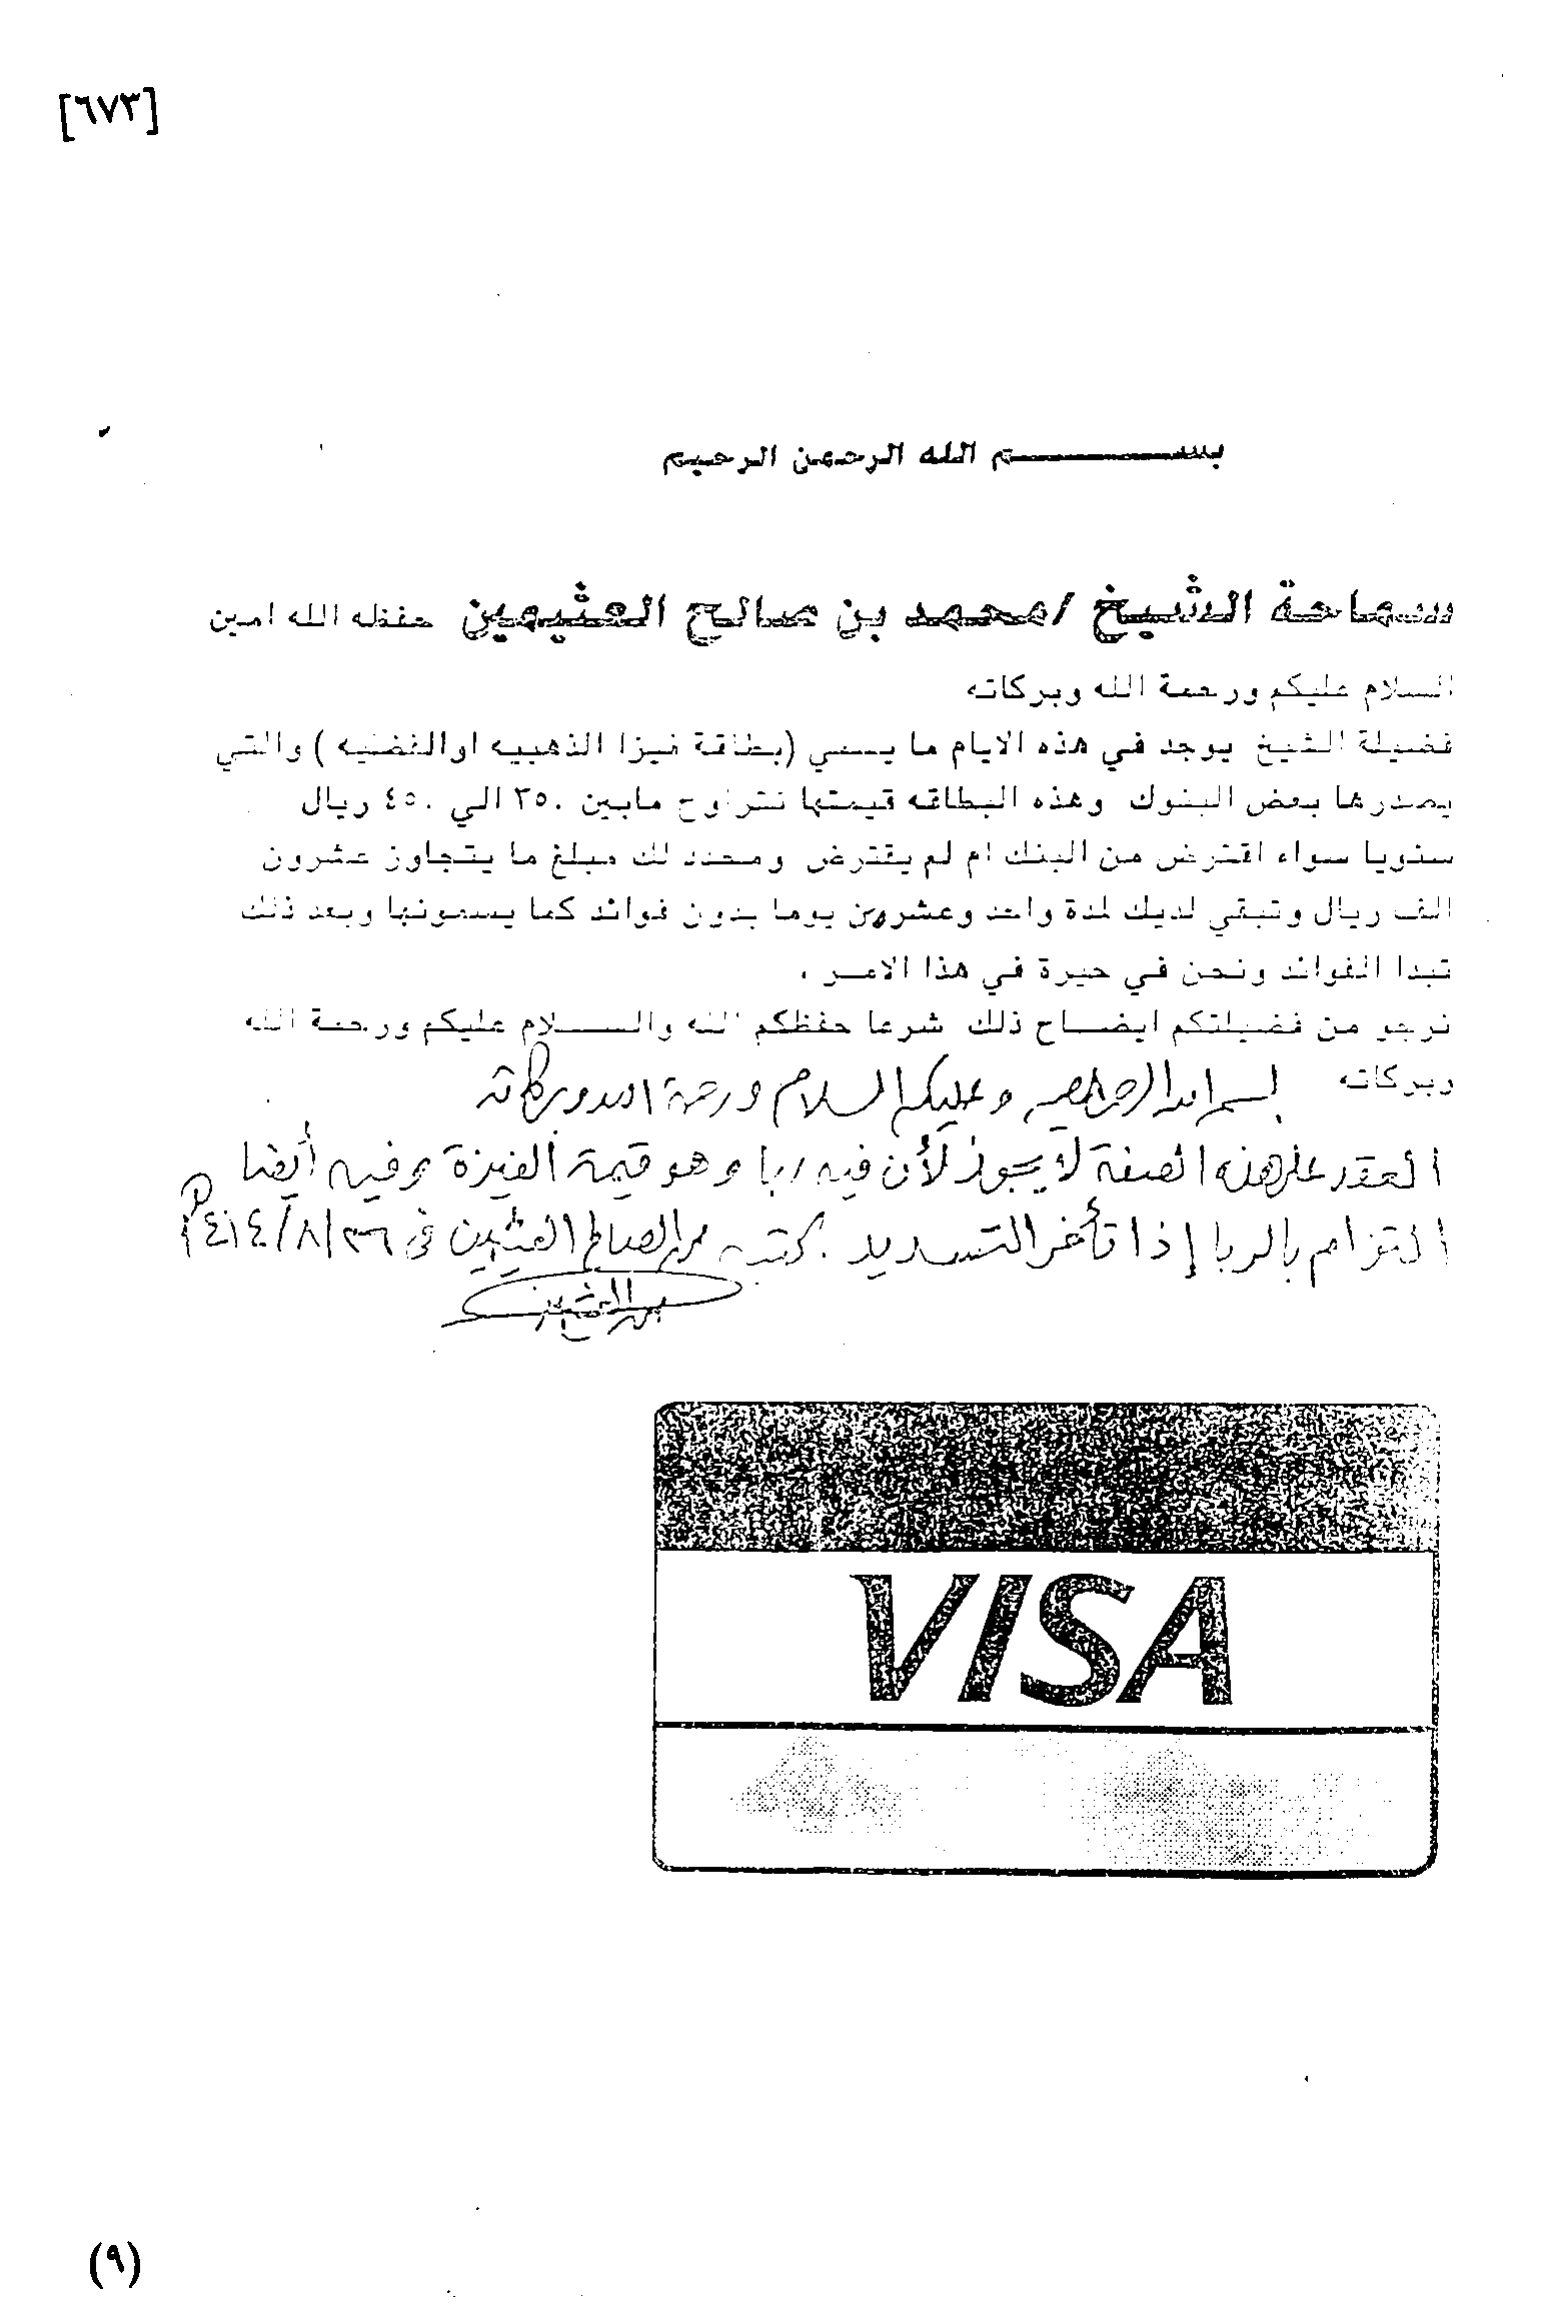 [٦٧٣]
بســـــــــــم الله الرحمن الرحيم
سماحة الشيخ /محمد بن صالح العثيمين حفظه الله امين
السلام عليكم ورحمة الله وبركاته
فضيلة الشيخ يوجد في هذه الايام ما يسمي (بطاقة فيزا الذهبيه اوالفضيه ) والتي
يصدرها بعض البنوك وهذه البطاقه قيمتها تتراوح مابين ٣٥٠ الي ٤٥٠ ريال
سنويا سواء اقترض من البنك ام لم يقترض ومحدد لك مبلغ ما يتجاوز عشرون
الف ريال وتبقي لديك لمدة واحد وعشرون يوما بدون فوائد كما يسمونها وبعد ذلك
تبدا الفوائد ونحن في حيرة في هذا الامر .
نرجو من فضيلتكم ايضـــاح ذلك شرعا حفظكم الله والســـلام عليكم ورحمة الله
وبركاته بسم الله الرحمن الرحيم وعليكم السلام ورحمة الله وبركاته
العقد على هذه الصفة لا يجوز لأن فيه ربا وهو قيمة الفيزة وفيه أيضا
التزام بالربا إذا تأخر التسديد . كتبه محمد الصالح العثيمين في ٢٦/٨/١٤١٤
محمد العثيمين
VISA
(٩)